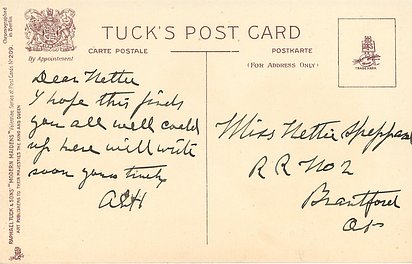 TUCK'S POST CARD
CARTE POSTALE
POSTKARTE
(FOR ADDRESS ONLY)
By Appointment
TRADE MARK
Chromographed
in Berlin
RAPHAEL TUCK & SONS' "MODERN MAIDENS" Valentine Series of Post Cards No 299.
ART PUBLISHERS TO THEIR MAJESTIES THE KING AND QUEEN
Dear Nettie
I hope this finds
you all well cold
up here will write
soon yours truly
Miss Nettie Sheppard
R R No 2
Brantford
Ont